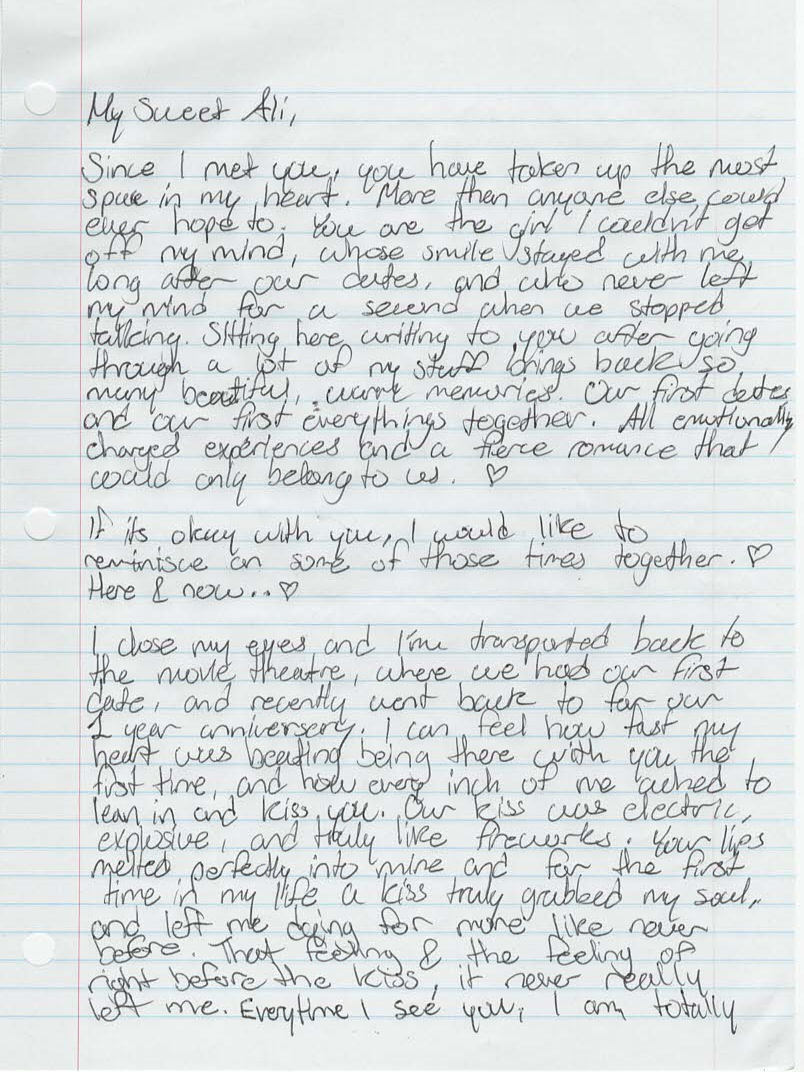 My Sweet Ali,
Since I met you, you have taken up the most
space in my heart. More than anyone else could
ever hope to. You are the girl I couldn't get
off my mind, whose smile stayed with me
long after our dates, and who never left
my mind for a second when we stopped
talking. Sitting here writing to you after going
through a lot of my stuff brings back so
many beautiful, warm memories. Our first dates
and our first everythings together. All emotionally
charged experiences and a fierce romance that
could only belong to us. ♡
If its okay with you, I would like to
reminisce on some of those times together. ♡
Here & now.. ♡
I close my eyes and I'm transported back to
the movie theatre, where we had our first
date, and recently went back to for our
1 year anniversery. I can feel how fast my
heart was beating being there with you the
first time, and how every inch of me ached to
lean in and kiss you. Our kiss was electric,
explosive, and truly like fireworks. Your lips
melted perfectly into mine and for the first
time in my life a kiss truly grabbed my soul,
and left me dying for more like never
before. That feeling & the feeling of
right before the kiss, it never really
left me. Everytime I see you, I am totally